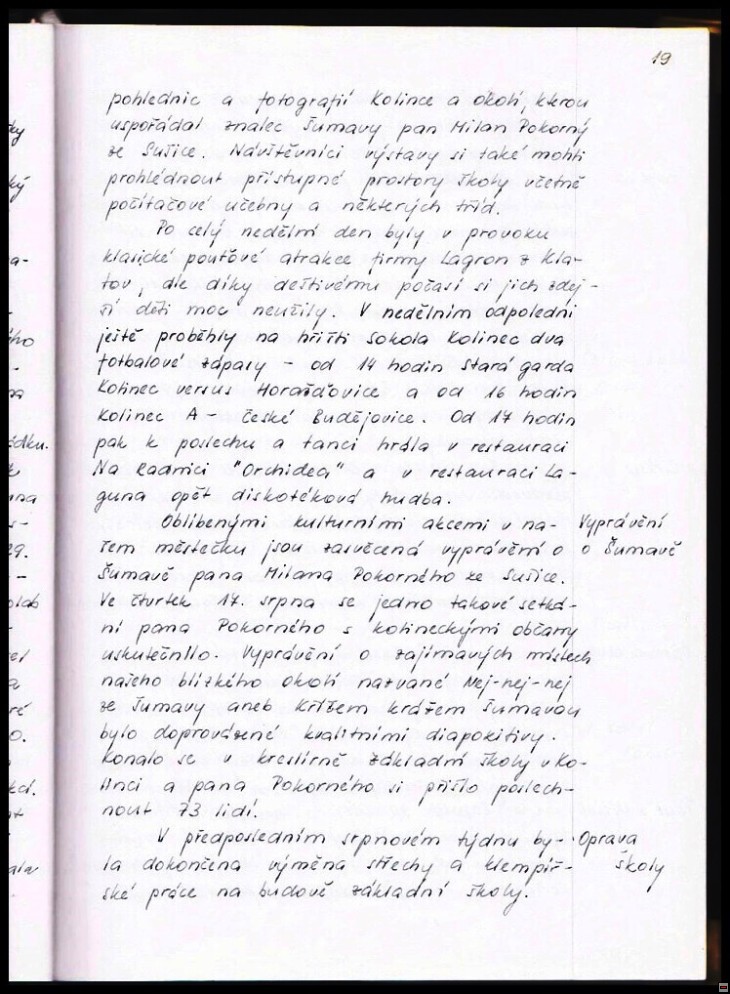 19
pohlednic a fotografií Kolince a okolí, kterou
uspořádal znalec Šumavy pan Milan Pokorný
ze Sušice. Návštěvníci výstavy si také mohli
prohlédnout přístupné prostory školy včetně
počítačové učebny a některých tříd.
Po celý nedělní den byly v provozu
klasické pouťové atrakce firmy Lagron z Kla-
tov, ale díky deštivému počasí si jich zdej-
ší děti moc neužily. V nedělním odpoledni
ještě proběhly na hřišti Sokola Kolinec dva
fotbalové zápasy - od 14 hodin Stará garda
Kolinec versus Horažďovice a od 16 hodin
Kolinec A - České Budějovice. Od 17 hodin
pak k poslechu a tanci hrála v restauraci
Na Radnici "Orchidea" a v restauraci La-
guna opět diskotéková hudba.
Oblíbenými kulturními akcemi v na- Vyprávění
šem městečku jsou zasvěcená vyprávění o o Šumavě
Šumavě pana Milana Pokorného ze Sušice.
Ve čtvrtek 17. srpna se jedno takové setká-
ní pana Pokorného s kolineckými občany
uskutečnilo. Vyprávění o zajímavých místech
našeho blízkého okolí nazvané Nej-nej-nej
ze Šumavy aneb Křížem krážem Šumavou
bylo doprovázené kvalitními diapozitivy.
Konalo se v kreslírně základní školy v Ko-
linci a pana Pokorného si přišlo poslech-
nout 73 lidí.
V předposledním srpnovém týdnu by- Oprava
la dokončena výměna střechy a klempíř- školy
ské práce na budově základní školy.